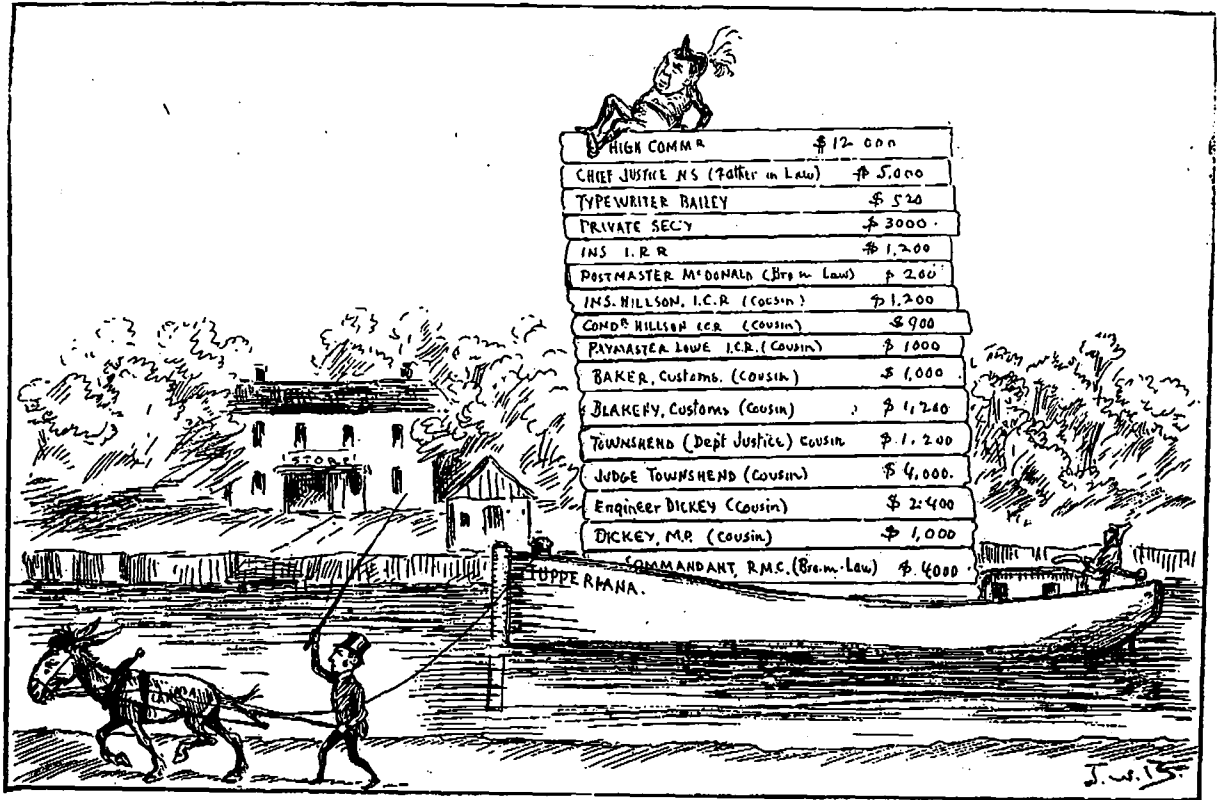 HIGH COMMR $12 000
CHIEF JUSTICE NS (Father in Law) $5,000
TYPEWRITER BAILEY $520
PRIVATE SECY $3000.
INS I.R R $1,200
POSTMASTER McDONALD (Bro in Law) $200
INS. HILLSON, I.C.R (Cousin) $1,200
CONDR HILLSON I.C.R (Cousin) $900
PAYMASTER LOWE I.C.R. (Cousin) $1000
BAKER, Customs. (Cousin) $1,000
BLAKENY, Customs (Cousin) $1,200
TOWNSHEND (Dept Justice) Cousin $1,200
JUDGE TOWNSHEND (Cousin) $4,000.
Engineer DICKEY (Cousin) $2.400
DICKEY, M.P. (Cousin) $1,000
COMMANDANT, R.M.C. (Bro-in-Law) $4000
STORE
TUPPERIANA.
CANADA
J.W.B.